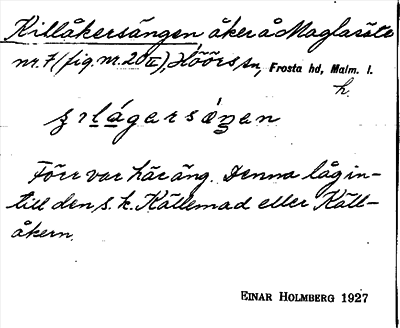 Killåkersängen åker å Maglasäte
nr. 7 (fig. nr. 20 II), Höörs sn, Frosta hd, Malm. l.
h.
Förr var här äng. Denna låg in-
till den s. k. Källemad eller Käll-
åkern.
EINAR HOLMBERG 1927